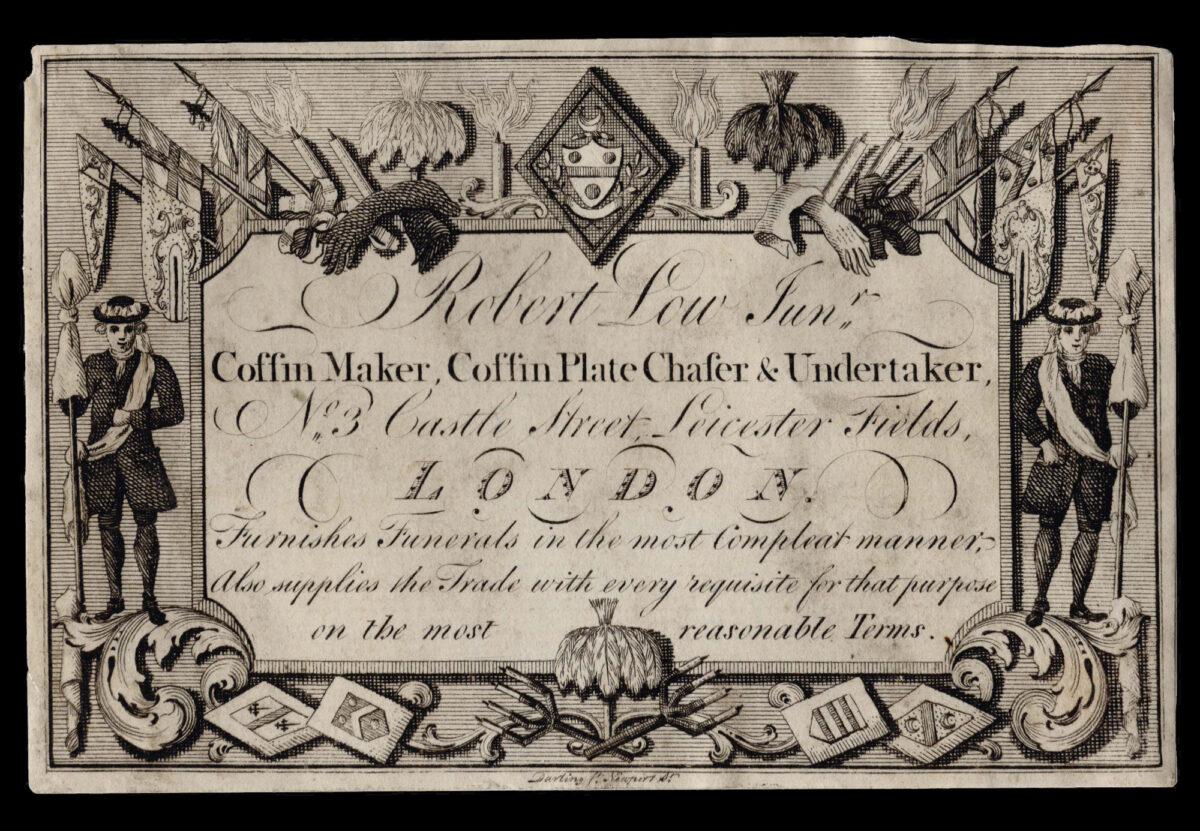 Robert Low Junr
Coffin Maker, Coffin Plate Chaser & Undertaker,
No. 3 Castle Street, Leicester Fields,
LONDON.
Furnishes Funerals in the most Compleat manner,
Also supplies the Trade with every requisite for that purpose
on the most reasonable Terms.
Darling ft. Newport St.